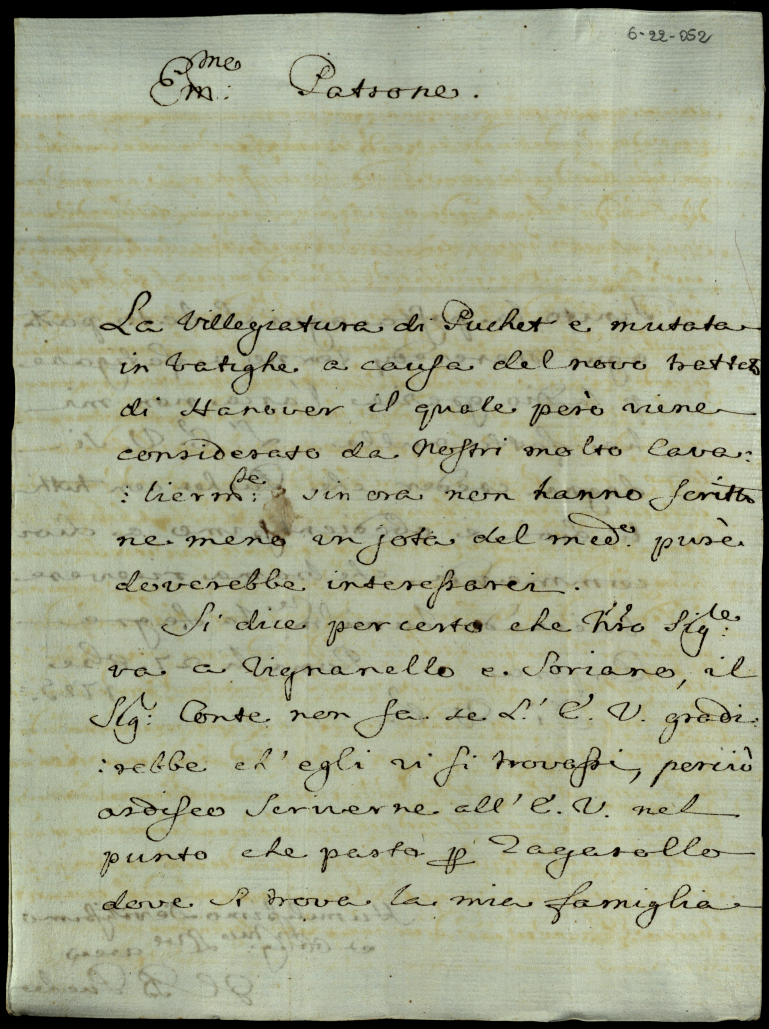 6-22-052
Em:me Patrone.
La Villegiatura di Puchet e mutata
in Vatighe a causa del novo trattat
di Hanover il quale però viene
considerato da Nostri molto Cava:
:lierm:te sin ora non hanno scritto
ne meno un jota del med:o purè
doverebbe interessarci.
Si dice per certo che N'ro Sig:le
va a Vignanello e Soriano, il
Sig: Conte non sa se L.' E. V. gradi:
:rebbe ch' egli vi si trovassi, perciò
ardisco scriverne all' E. V. nel
punto che parto p Zagarollo
dove si trova la mia famiglia